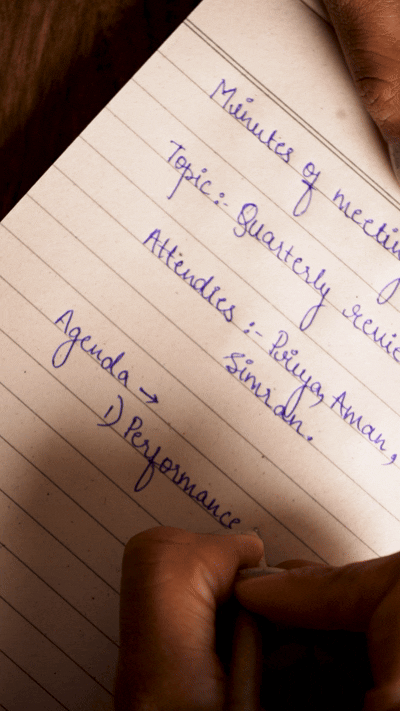 Minutes of meetin
Topic :- Quarterly revie
Attendies :- Priya, Aman,
Simran.
Agenda →
1) Performance